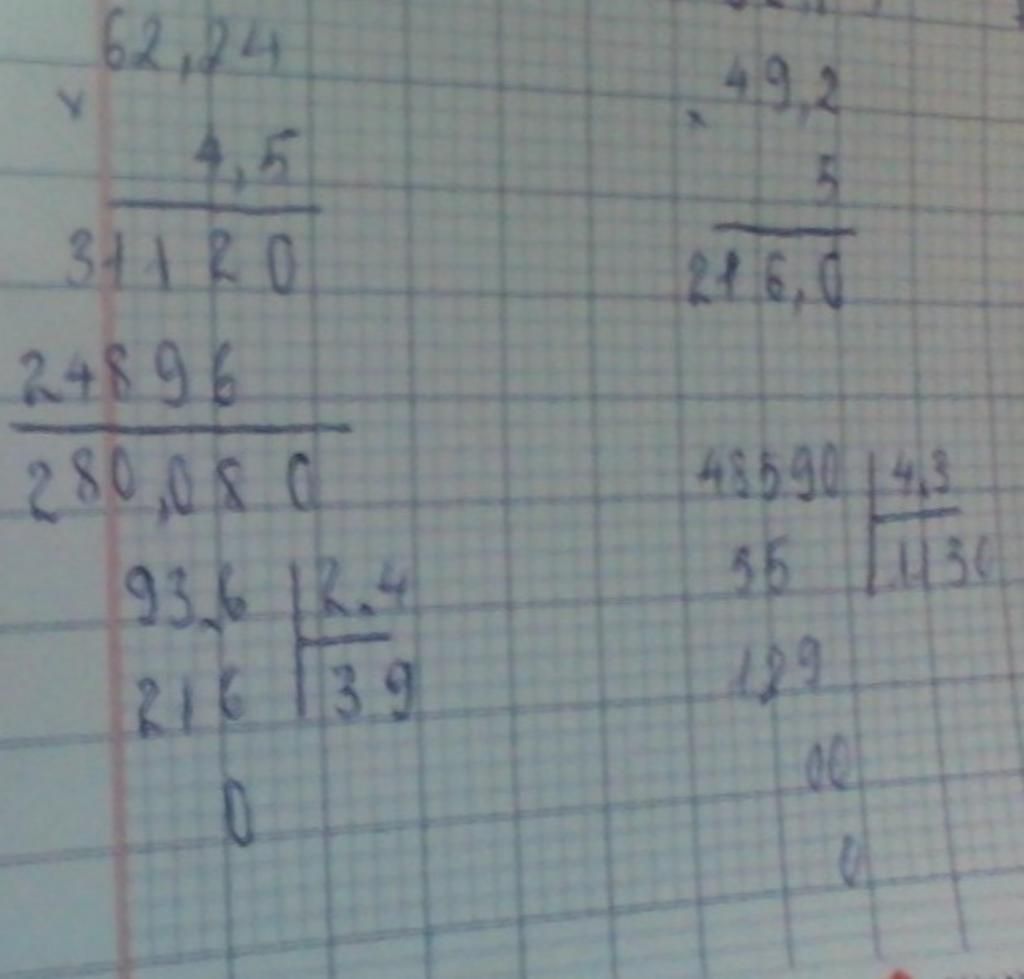 62,24
×
4,5
31120
24896
280,080
93,6 2,4
216 39
0
49,2
×
5
216,0
48590 4,3
55 1130
129
00
0